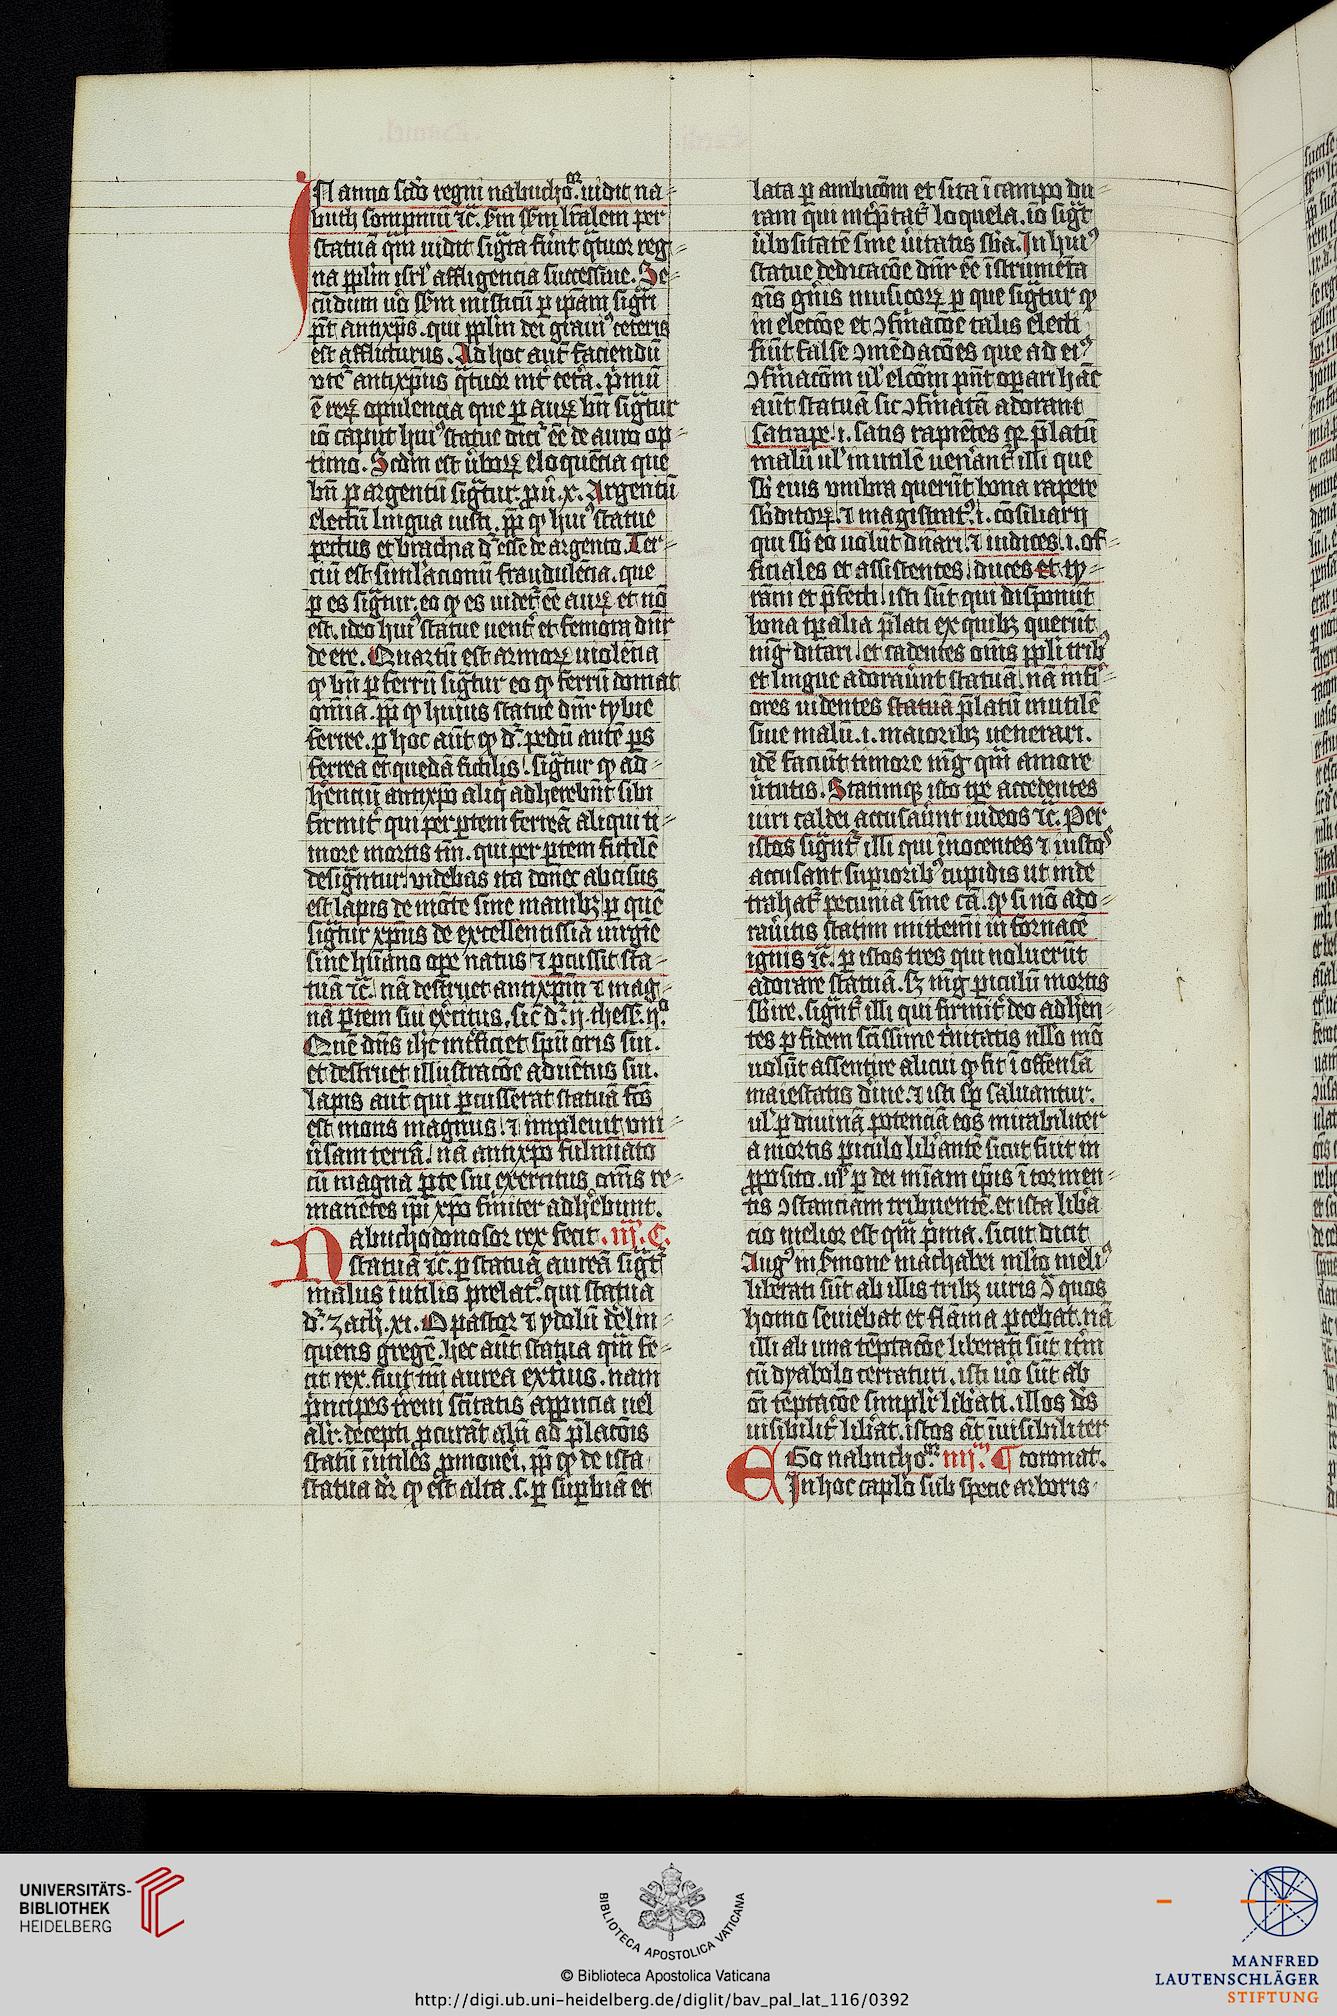 In anno scdo regni nabucho.ᵒʳ uidit na
buch sompniū ⁊c̄. Scdm sēm lr̄alem per
statuā qm̄ uidit sigͣta fūnt q̄tuor reg
na ppl̄m isrl̄ affligencia successiue. Se
cūdum uō sēm misticū ꝑ ip̄am sigͣri
pt̄ antixp̄s. qui ppl̄m dei graui⁹ ceteris
est afflicturus. Ad hoc aut̄ faciendū
antixp̄us q̄tuor int̓ cet̓a. pͥmū
ē reꝝ opulencia que ꝑ auꝝ bn̄ sigͣtur
iō caput hui⁹ statue dicit̓ ēē de auro op
timo. Scdm est ūboꝝ eloquēcia que
bn̄ ꝑ argentū sigͣtur. ꝓū. x. Argentū
electū lingua iusti. ꝓp̄ ꝙ hui⁹ statue
pectus et brachia dr̄ esse de argento. Ter
ciū est simulacionū fraudulēcia. que
ꝑ es sigͣtur. eo ꝙ es uidet̓ ēē auꝝ et nō
est. ideo hui⁹ statue uent̓ et femora dn̄r
de ere. Quartū est armoꝝ uiolēcia
ꝙ bn̄ ꝑ ferrū sigͣtur eo ꝙ ferrū domat
omīa. ꝓp̄ ꝙ huius statue dn̄r tybie
ferree. ꝑ hoc aut̄ ꝙ dr̄. pedū autē ꝑs
ferrea et quedā fictilis. sigͣtur ꝙ ad
hēnciū antixp̄o aliq̄ adherebūt sibi
firmit̓ qui per ꝑtem ferreā aliqui ti
more mortis tm̄. qui per ꝑtem fictilē
designntur. videbas ita donec abcisus
est lapis de mōte sine manibꝫ ꝑ quē
sigͣtur xp̄us de excellentissīa uirgīe
sine hūano oꝑe natus ⁊ ꝑcussit sta
tuā ⁊c̄. nā destruet antixp̄m ⁊ mag
nā ꝑtem sui ex̓citus. sic̄ dr̄. ij. thess. ij.ᵃ
Quē dn̄s ih̄c int̓ficiet spū oris sui.
et destruet illustracōe aduētus sui.
lapis aut̄ qui ꝑcusserat statuā fc̄s
est mons magnus. ⁊ impleuit vni
ūsam terrā. nā antixp̄o fulmīato
cū magna ꝑte sui exercitus om̄s re
manētes ip̄i xp̄o fīmiter adhr̄ebunt.
Nabuchodonosor rex fecit. iij. C.
statuā ⁊c̄. ꝑ statuā aureā sigͣt̓
malus īutilis prelat⁹. qui statua
dr̄. zach. xi. O pastor ⁊ ydolū derelin
quens gregē. hec aut̄ statua qm̄ fe
cit rex. fuit tm̄ aurea ext̓ius. nam
pͥncipes treni scītatis apparncia uel
alit̓. decepti ꝓcurāt aliū ad p̄lacōis
statū īutiles ꝓmoueri. ꝓp̄ ꝙ de ista
statua dr̄ ꝙ est alta. s. ꝑ suꝑbiā et
lata ꝑ ambicōm et sita ī campo du
ram qui int̓p̄tat̓ loquela. iō sigͣt̓
ūbositatē sine ūitatis sb̄a. In hui⁹
statue dedicacōe dn̄r ēē īstrumēta
om̄s gn̄is musicoꝝ ꝑ que sigͣtur ꝙ
in eleccōe et ɔfirmacōe talis electi
fiūt false ɔmēdacōes que ad ei⁹
ɔfirmacōm ul̓ elcōm pn̄t operari hāc
aūt statuā sic ɔfirmatā adorant
satrape .i. satis rapiētes qꝫ p̄latū
malū ul̓ inutilē uen̓ant̓ illi que
sb̄ eius vmbra querūt bona rapere
sb̄ditoꝝ. ⁊ magistrat⁹ .i. cōsiliarij
qui sb̄ eo uolūt dn̄ari. ⁊ iudices .i. of
ficiales et assistentes. duces et ty
rāni et p̄fecti. isti sūt qui disponūt
bona tꝑalia p̄lati ex quibꝫ querūt
mḡ ditari. et cadentes om̄s ppl̄i trib⁹
et lingue adorauūnt statuā. nā infi
ores uidentes statuā p̄latū inutilē
siue malū .i. maioribꝫ uenerari.
idē faciūt timore mḡ qm̄ amore
ūtutis. Statimqꝫ isto tꝑe accedentes
uiri caldei accusauūnt iudeos ⁊c̄. Per
istos sigͣnt̓ illi qui īnocentes ⁊ iustos
accusant superiorib⁹ cupidis ut inde
trahat̓ pecunia sine cā. ꝙ si nō ado
rau̓itis statim mittemī in fornacē
ignis ⁊c̄. ꝑ istos tres qui noluerūt
adorare statuā. sꝫ mḡ ꝑiculū mortis
sb̄ire. sigͣnt̓ illi qui firmit̓ deo adhēn
tes ꝑ fidem scīssime t̓nitatis nll̓o mō
uolūt assentire alicui ꝙ sit ī offensā
maiestatis dīue. ⁊ isti sꝑ saluantur.
ul̓ ꝑ diuinā potenciā eos mirabiliter
a mortis ꝑiculo lib̓antē sicut fuit in
ꝓposito. ul̓ ꝑ dei mīam ip̄is ī tormen
tis ɔstanciam tribuentē. et ista lib̓a
cio melior est qm̄ pͥma. sicut dicit
Aug⁹ in sermone machabei nisto meli⁹
liberati sūt ab illis tribꝫ uiris ɔ̄ quos
homo seuiebat et flāma ꝑcebat. nā
illi ab una tēptacōe liberati sūt it̓m
cū dyabolo certaturi. isti uō sūt ab
om̄i tēptacōe simplr̄ lib̓ati. illos ds̄
uisibilit̓ lib̓at. istos at̄ īuisibiliter
coronat.
Ego nabucho.ᵒʳ iiij.ᵐ C
In hoc caplo sub specie arboris
UNIVERSITÄTS-
BIBLIOTHEK
HEIDELBERG
BIBLIOTECA APOSTOLICA VATICANA
© Biblioteca Apostolica Vaticana
http://digi.ub.uni-heidelberg.de/diglit/bav_pal_lat_116/0392
MANFRED
LAUTENSCHLÄGER
STIFTUNG